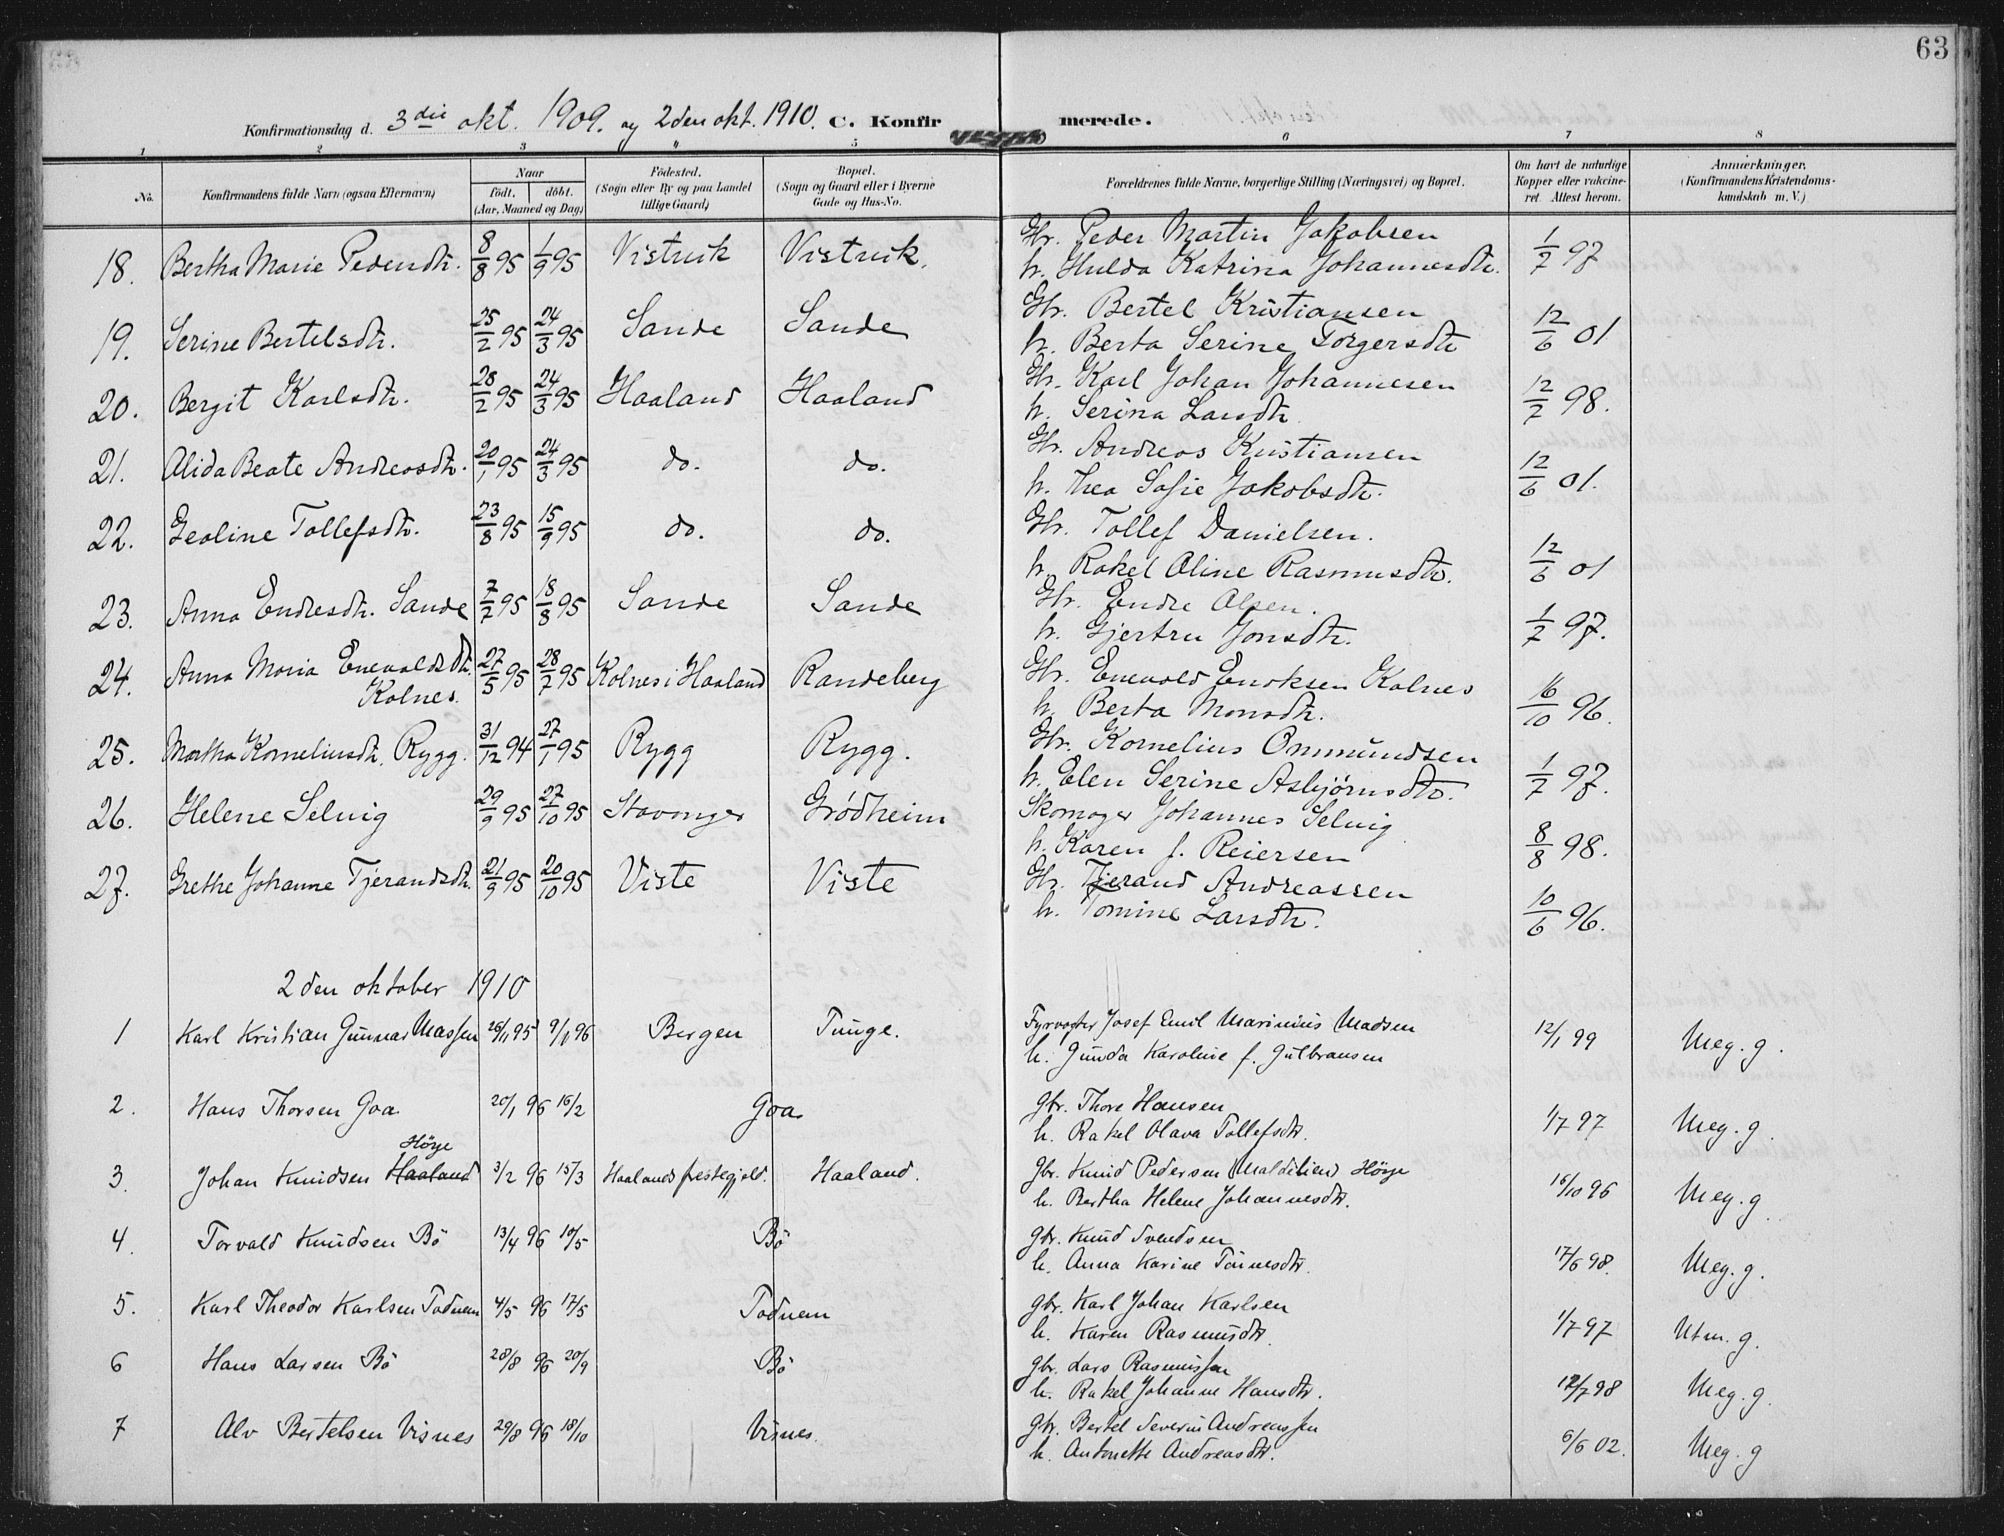 63
Konfirmationsdag d. 3die okt. 1909. og 2den okt. 1910. C. Konfirmerede.
1 2 3 4 5 6 7 8
No. Konfirmandens fulde Navn (ogsaa Efternavn) Naar födt. döbt. (Aar, Maaned og Dag) Födested. (Sogn eller By og paa Landet tillige Gaard) Bopæl. (Sogn og Gaard eller i Byerne Gade og Hus-No. Forældrenes fulde Navne, borgerlige Stilling (Næringsvei) og Bopæl. Om havt de naturlige Kopper eller vakcineret. Attest herom. Anmærkninger. (Konfirmandens Kristendomskundskab m. V.)
18. Bertha Marie Pedersdtr. 8/8 95 1/9 95 Vistvik Vistvik. Gbr. Peder Martin Jakobsen 1/7 97
h. Hulda Katrina Johannesdtr.
19. Serine Bertelsdtr. 25/2 95 24/3 95 Sande Sande Gbr. Bertel Kristiansen 12/6 01
h. Berta Serine Torgersdtr
20. Bergit Karlsdtr. 28/2 95 24/3 95 Haaland Haaland Gbr. Karl Johan Johannesen 12/7 98.
h. Serina Larsdtr
21. Alida Beate Andreasdtr. 20/1 95 24/3 95 do. do. Gbr. Andreas Kristiansen 12/6 01.
h. Thea Sofie Jakobsdtr.
22. Gealine Tollefsdtr. 23/8 95 15/9 95 do. do. Gbr. Tollef Danielsen. 12/6 01
h. Rakel Oline Rasmusdtr.
23. Anna Endresdtr. Sande 7/7 95 18/8 95 Sande Sande Gbr. Endre Olsen. 1/7 97.
h. Gjertru Jonsdtr.
24. Anna Maria Enevaldsdtr. Kolnes. 27/5 95 28/7 95 Kolnes i Haaland Randeberg Gbr. Enevald Eriksen Kolnes 16/10 96.
h. Berta Monsdtr.
25. Martha Korneliusdtr. Rygg. 31/12 94 27/1 95 Rygg Rygg. Gbr. Kornelius Ommundsen 1/7 97.
h. Elen Serine Asbjørnsdtr.
26. Helene Selvig 29/9 95 27/10 95 Stavanger Grødheim Skomager Johannes Selvig 8/8 98.
h. Karen f. Reiersen
27. Grethe Johanne Tjerandsdtr. 21/9 95 20/10 95 Viste Viste Gbr. Tjerand Andreassen 10/6 96.
h. Tomine Larsdtr.
2den oktober 1910
1 Karl Kristian Gunnar Massen 26/11 95 9/1 96 Bergen Tunge. Fyrvogter Josef Emil Marinius Madsen 12/1 99 Meg. g.
h. Gunda Karoline f. Gulbransen
2. Hans Thorsen Goa 20/1 96 16/2 Goa Gbr. Thore Hansen 1/7 97 Meg. g.
h. Rakel Olava Tollefsdtr.
3. Johan Knudsen Haaland Hörje 3/2 96 15/3 Haalands prestegjeld. Haaland. Gbr. Knud Pedersen (Maldelien) Hörje 16/10 96 Meg. g
h. Bertha Helene Johannesdtr.
4. Torvald Knudsen Bö 13/4 96 10/5 Bö Gbr. Knud Svendsen 17/6 98. Meg. g.
h. Anna Karine Tönnesdtr.
5. Karl Theodor Karlsen Todnem 4/5 96 17/5 Todnem Gbr. Karl Johan Karlsen 1/7 97 Utm. g.
h. Karen Rasmusdtr.
6 Hans Larsen Bö 28/8 96 20/9 Bö Gbr. Lars Rasmussen 12/7 98 Meg. g.
h. Rakel Johanne Hansdtr.
7 Alv Bertelsen Visnes 29/8 96 18/10 Visnes. Gbr. Bertel Severin Andreassen 6/6 02. Meg. g
h. Antonette Andreasdtr.